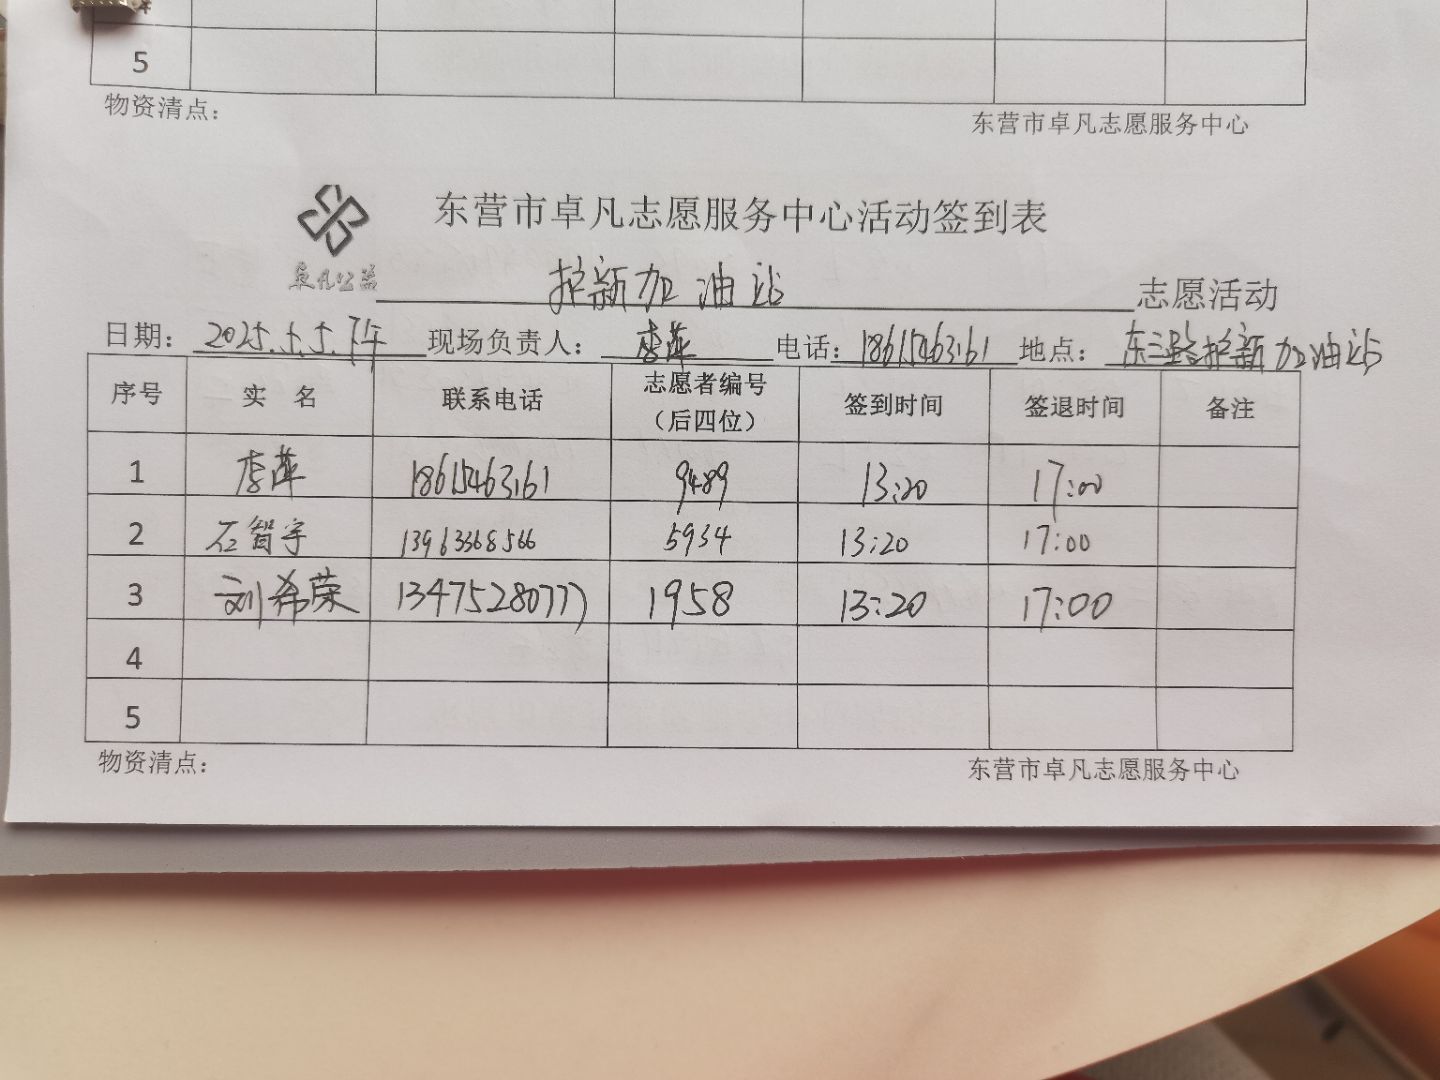 5
物资清点：
东营市卓凡志愿服务中心
东营市卓凡志愿服务中心活动签到表
卓凡公益
护新加油站 志愿活动
日期：2025.5.5.下午 现场负责人：李萍 电话：18615463161 地点：东三路护新加油站
序号 实 名 联系电话 志愿者编号（后四位） 签到时间 签退时间 备注
1 李萍 18615463161 9489 13:20 17:00
2 石智宇 13963368566 5934 13:20 17:00
3 刘希荣 13475280777 1958 13:20 17:00
4
5
物资清点：
东营市卓凡志愿服务中心